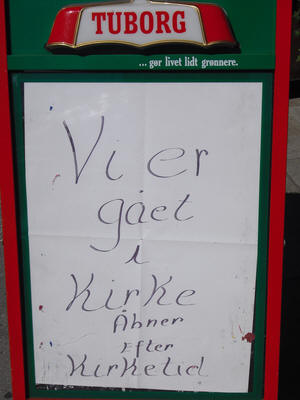 TUBORG
... gør livet lidt grønnere.
Vi er
gået
i
Kirke
Åbner
Efter
Kirketid